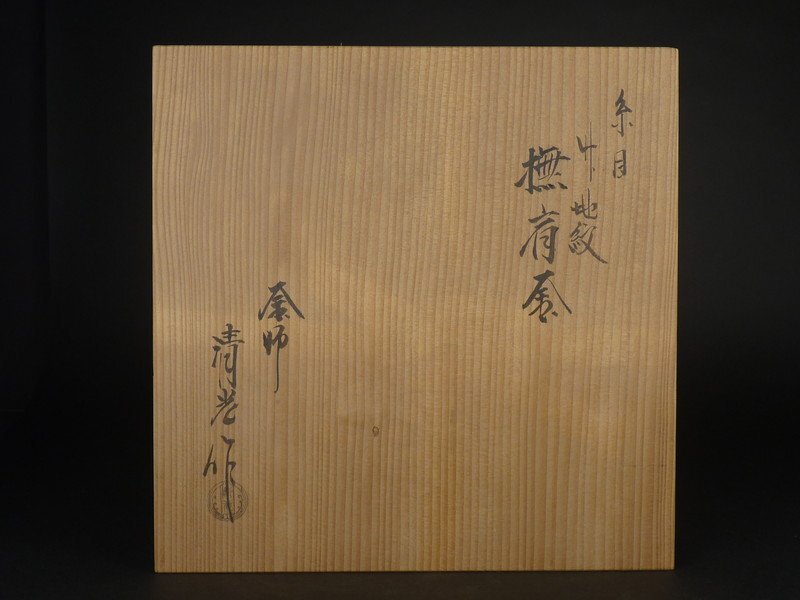 糸目
竹地紋
撫肩釜
釜師
清光作